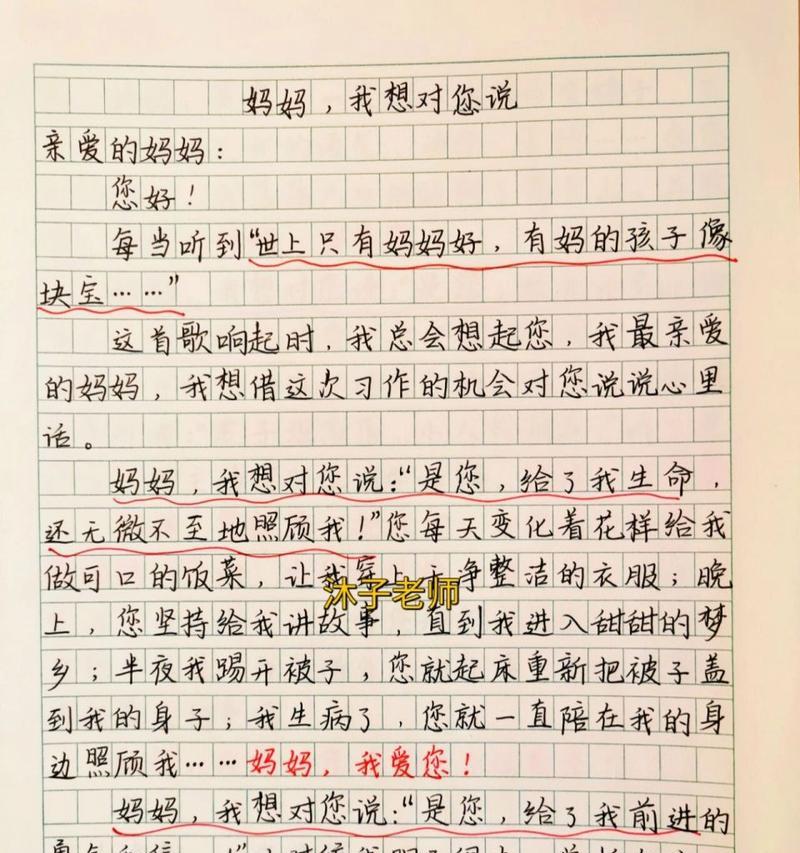 妈妈，我想对您说
亲爱的妈妈：
您好！
每当听到“世上只有妈妈好，有妈的孩子像
块宝……”
这首歌响起时，我总会想起您，我最亲爱
的妈妈，我想借这次习作的机会对您说说心里
话。
妈妈，我想对您说：“是您，给了我生命，
还无微不至地照顾我！”您每天变化着花样给我
做可口的饭菜，让我穿上干净整洁的衣服；晚
沐子老师
上，您坚持给我讲故事，直到我进入甜甜的梦
乡；半夜我踢开被子，您就起床重新把被子盖
到我的身子；我生病了，您就一直陪在我的身
边照顾我……妈妈，我爱您！
妈妈，我想对您说：“是您，给了我前进的